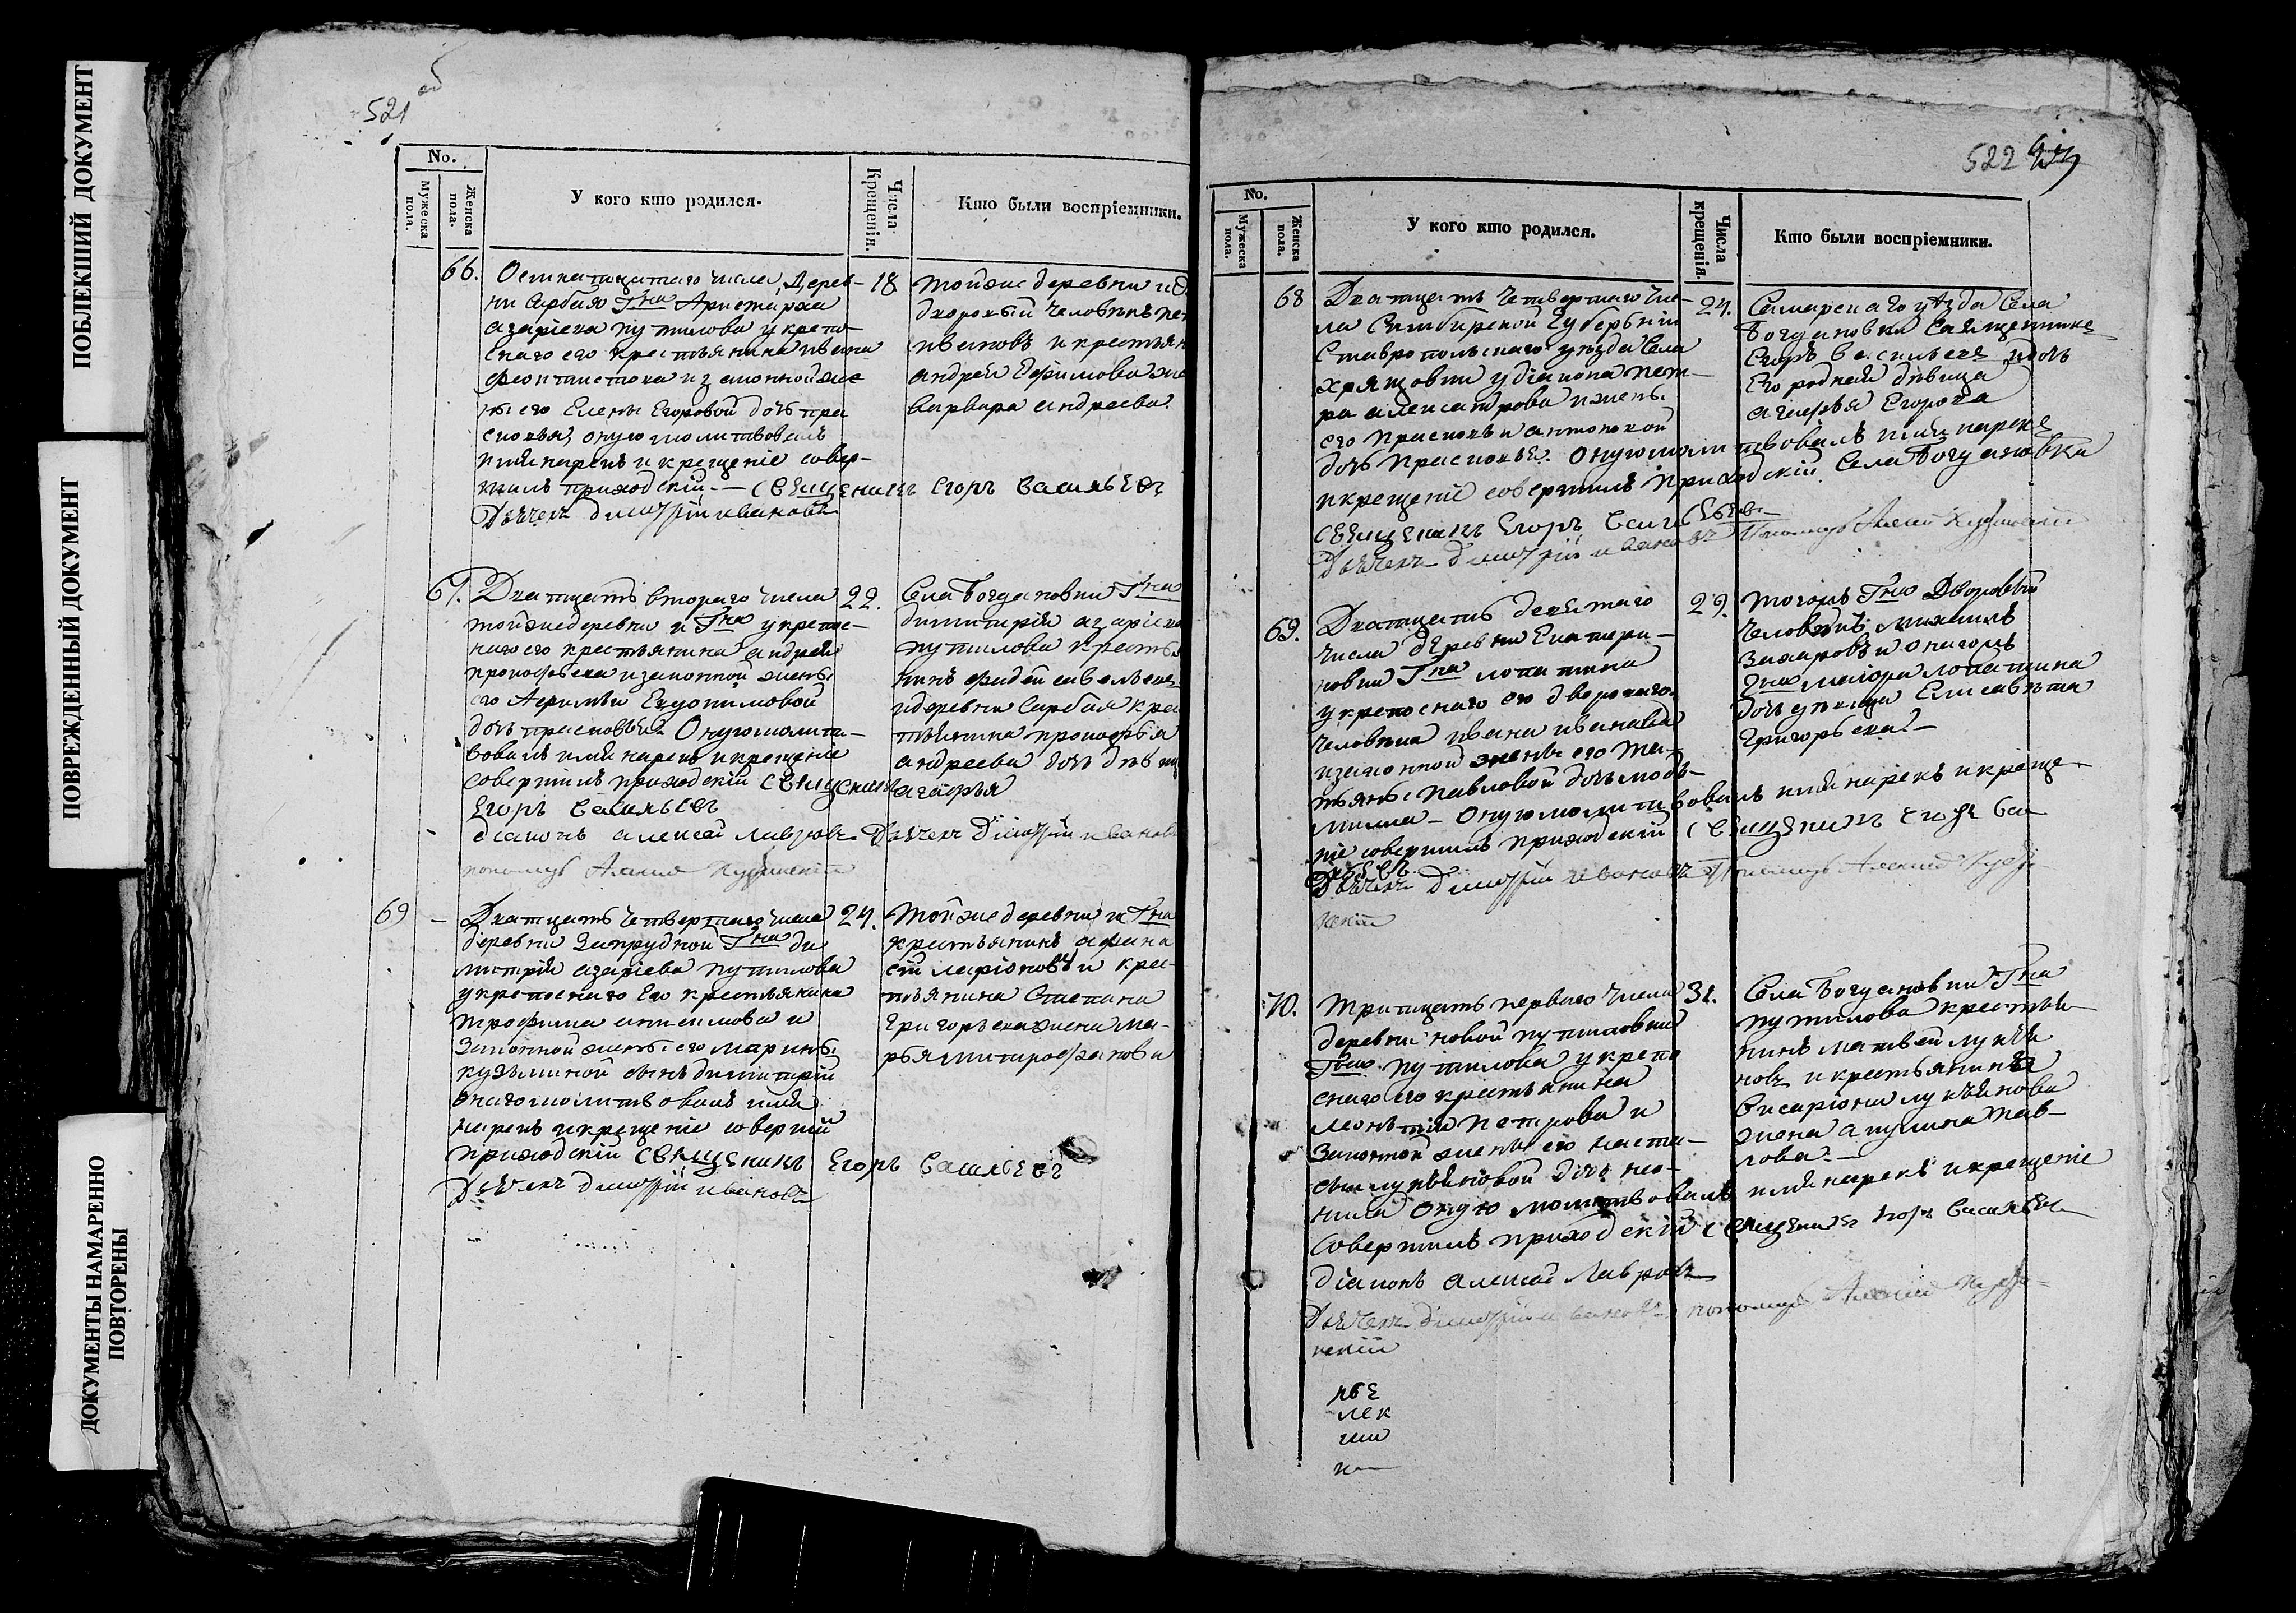 ПОБЛЕКШИЙ ДОКУМЕНТ
ПОВРЕЖДЕННЫЙ ДОКУМЕНТ
ДОКУМЕНТЫ НАМАРЕННО
ПОВТОРЕНЫ
521 об
No.
Мужеска пола.
Женска пола.
У кого кто родился.
Числа Крещенія.
Кто были воспріемники.
66.
Осмнатцатаго числа Дерев-
ни Сарбая Гна Аристарха
азаріева путилова укрепо-
снаго его крестьянина ивана
феоктистова и законной же-
ны его Елены Егоровой дочь пра
сковья, оную молитвовалъ
имя нарекъ и крещеніе совер-
шилъ приходскій — священникъ Егоръ Васильевъ
Дьячекъ Димитрій ивановъ
18
Той же деревни
дворовый человѣкъ
ивановъ и крестьян
андрея Ефимова же
варвара андреева.
67.
Дватцать втораго числа
той же деревни и Гна укрепос-
наго его крестьянина андрея
прокофьева и законной жены
его
дочь прасковья Оную молит-
вовалъ имя нарекъ и крещеніе
совершилъ приходскій священникъ
Егоръ Васильевъ
діаконъ алексей лавровъ Дьячекъ Димитрій иванов
пономарь Алексей
22.
Села Богдановки Гна
димитрія азаріева
путилова крестья
нинъ фадей савельевъ
и деревни Сарбая кре
стьянина прокофья
андреева дочь дѣвица
агафья
69
—
Дватцать четвертаго числа
деревни Запрудной Гна ди
митрія азаріева путилова
укрепоснаго Его крестьянина
трофима анисимова и
Законной жены его марины
кузьминой сынъ димитрій
онаго молитвовалъ имя
нарекъ и крещеніе соверши
приходскій священникъ Егоръ Васильевъ
Дьячекъ Димитрій ивановъ
24.
Той же деревни и Гна
крестьянинъ афана
сій ларіоновъ и крес-
тьянина Степана
григорьева жена ма-
рья митрофанова
522
No.
Мужеска пола.
Женска пола.
У кого кто родился.
Числа крещенія.
Кто были воспріемники.
68
Дватцать четвертаго чис-
ла Симбирской Губерніи
Ставропольскаго уѣзда Села
хрящовки у діакона пет-
ра александрова и жены
его Прасковьи антоновой
дочь Прасковья. Оную молитвовалъ имя нарекъ
и крещеніе совершилъ приходскій Села Богдановки
священникъ Егоръ Васильевъ
Дьячекъ Димитрій ивановъ Пономарь Алексей
24.
Самарскаго уѣзда Села
Богдановки Священника
Егоръ Васильевъ и дочь
Его родная дѣвица
агафья Егорова
69.
Дватцать девятаго
числа деревни Екатери-
новки Гна лопатина
укрепоснаго его двороваго
человѣка ивана иванова
и законной жены его та-
тьяны Павловой дочь
Оную молитвовалъ имя нарекъ и креще-
ніе совершилъ приходскій священникъ Егоръ Ва
сильевъ
Дьячекъ Димитрій ивановъ Пономарь Алексей
29.
тогожъ Гна Дворовый
Человѣкъ михаилъ
Захаровъ и онагожъ
Гна маіора лопатина
дочь дѣвица Елисавета
Григорьева. —
70.
Тритцать перваго числа
деревни новой путиловки
Гна путилова укрепо
снаго его крестьянина
петрова и
Законной жены его наста-
сьи лукьяновой дочь не-
нила оную молитвовалъ имя нарекъ и крещеніе
Совершилъ приходскій священникъ Егоръ Васильевъ
Діаконъ алексей Лавровъ
Дьячекъ Димитрій ивановъ пономарь Алексей
31.
Села Богдановки Гна
путилова крестья
нинъ матвей лукья
новъ и крестьянина
Висаріона лукьянова
жена акулина пав-
лова. —